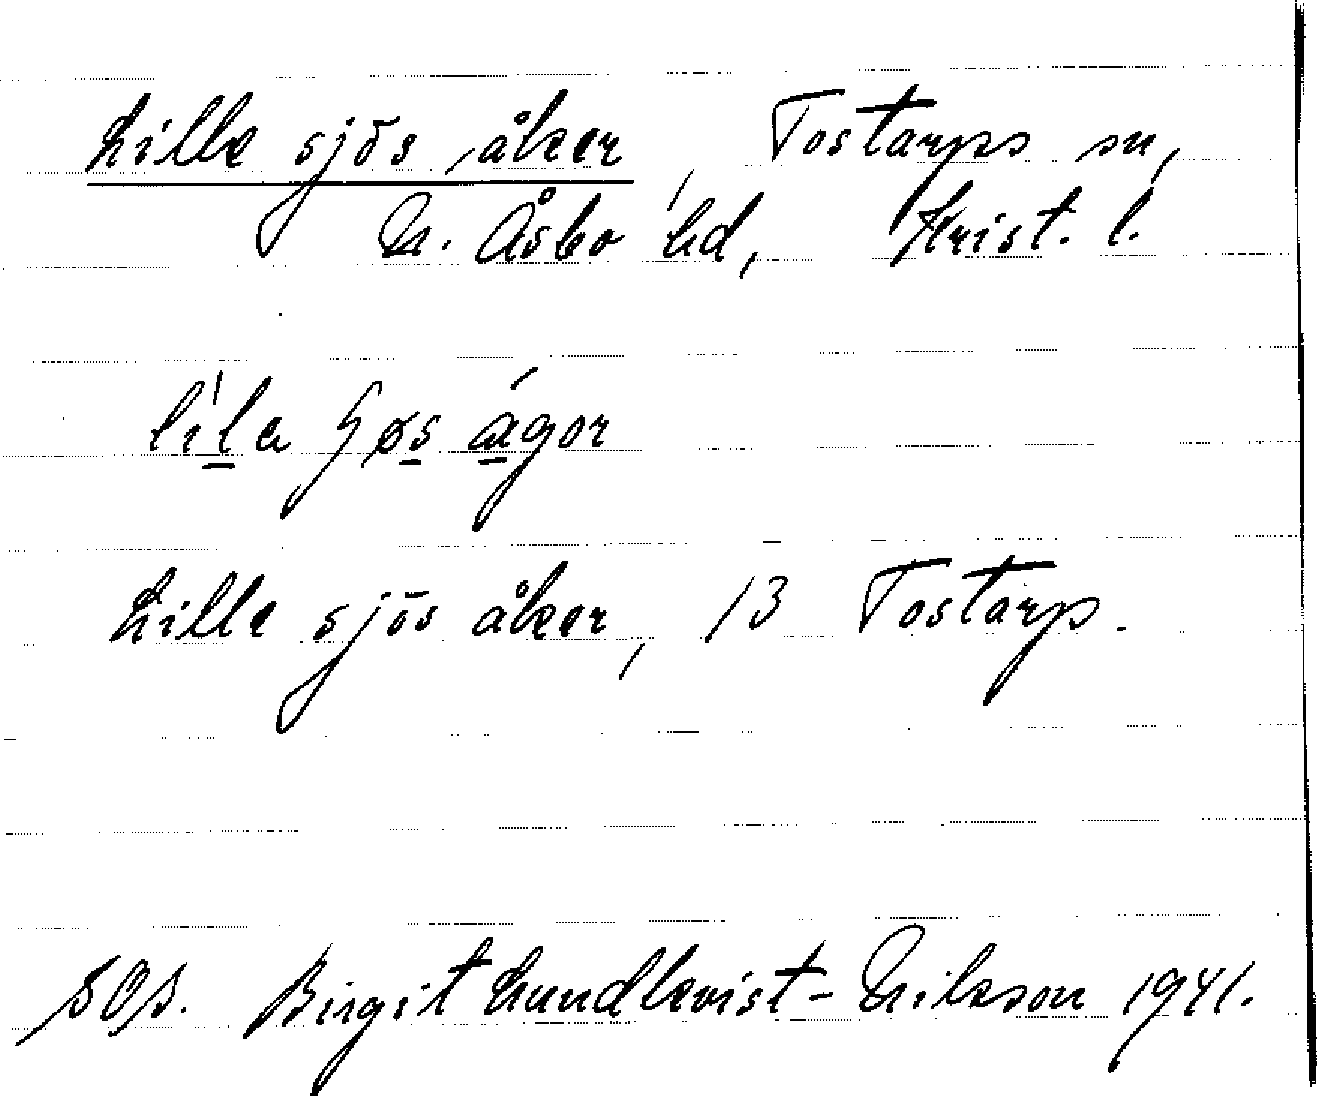 Lille sjös åker, Tostarps sn,
N. Åsbo hd, Krist. l.
lila ɧøs ågor
Lille sjös åker, 13 Tostarp.
SOS. Birgit Lundkvist-Nilsson 1941.